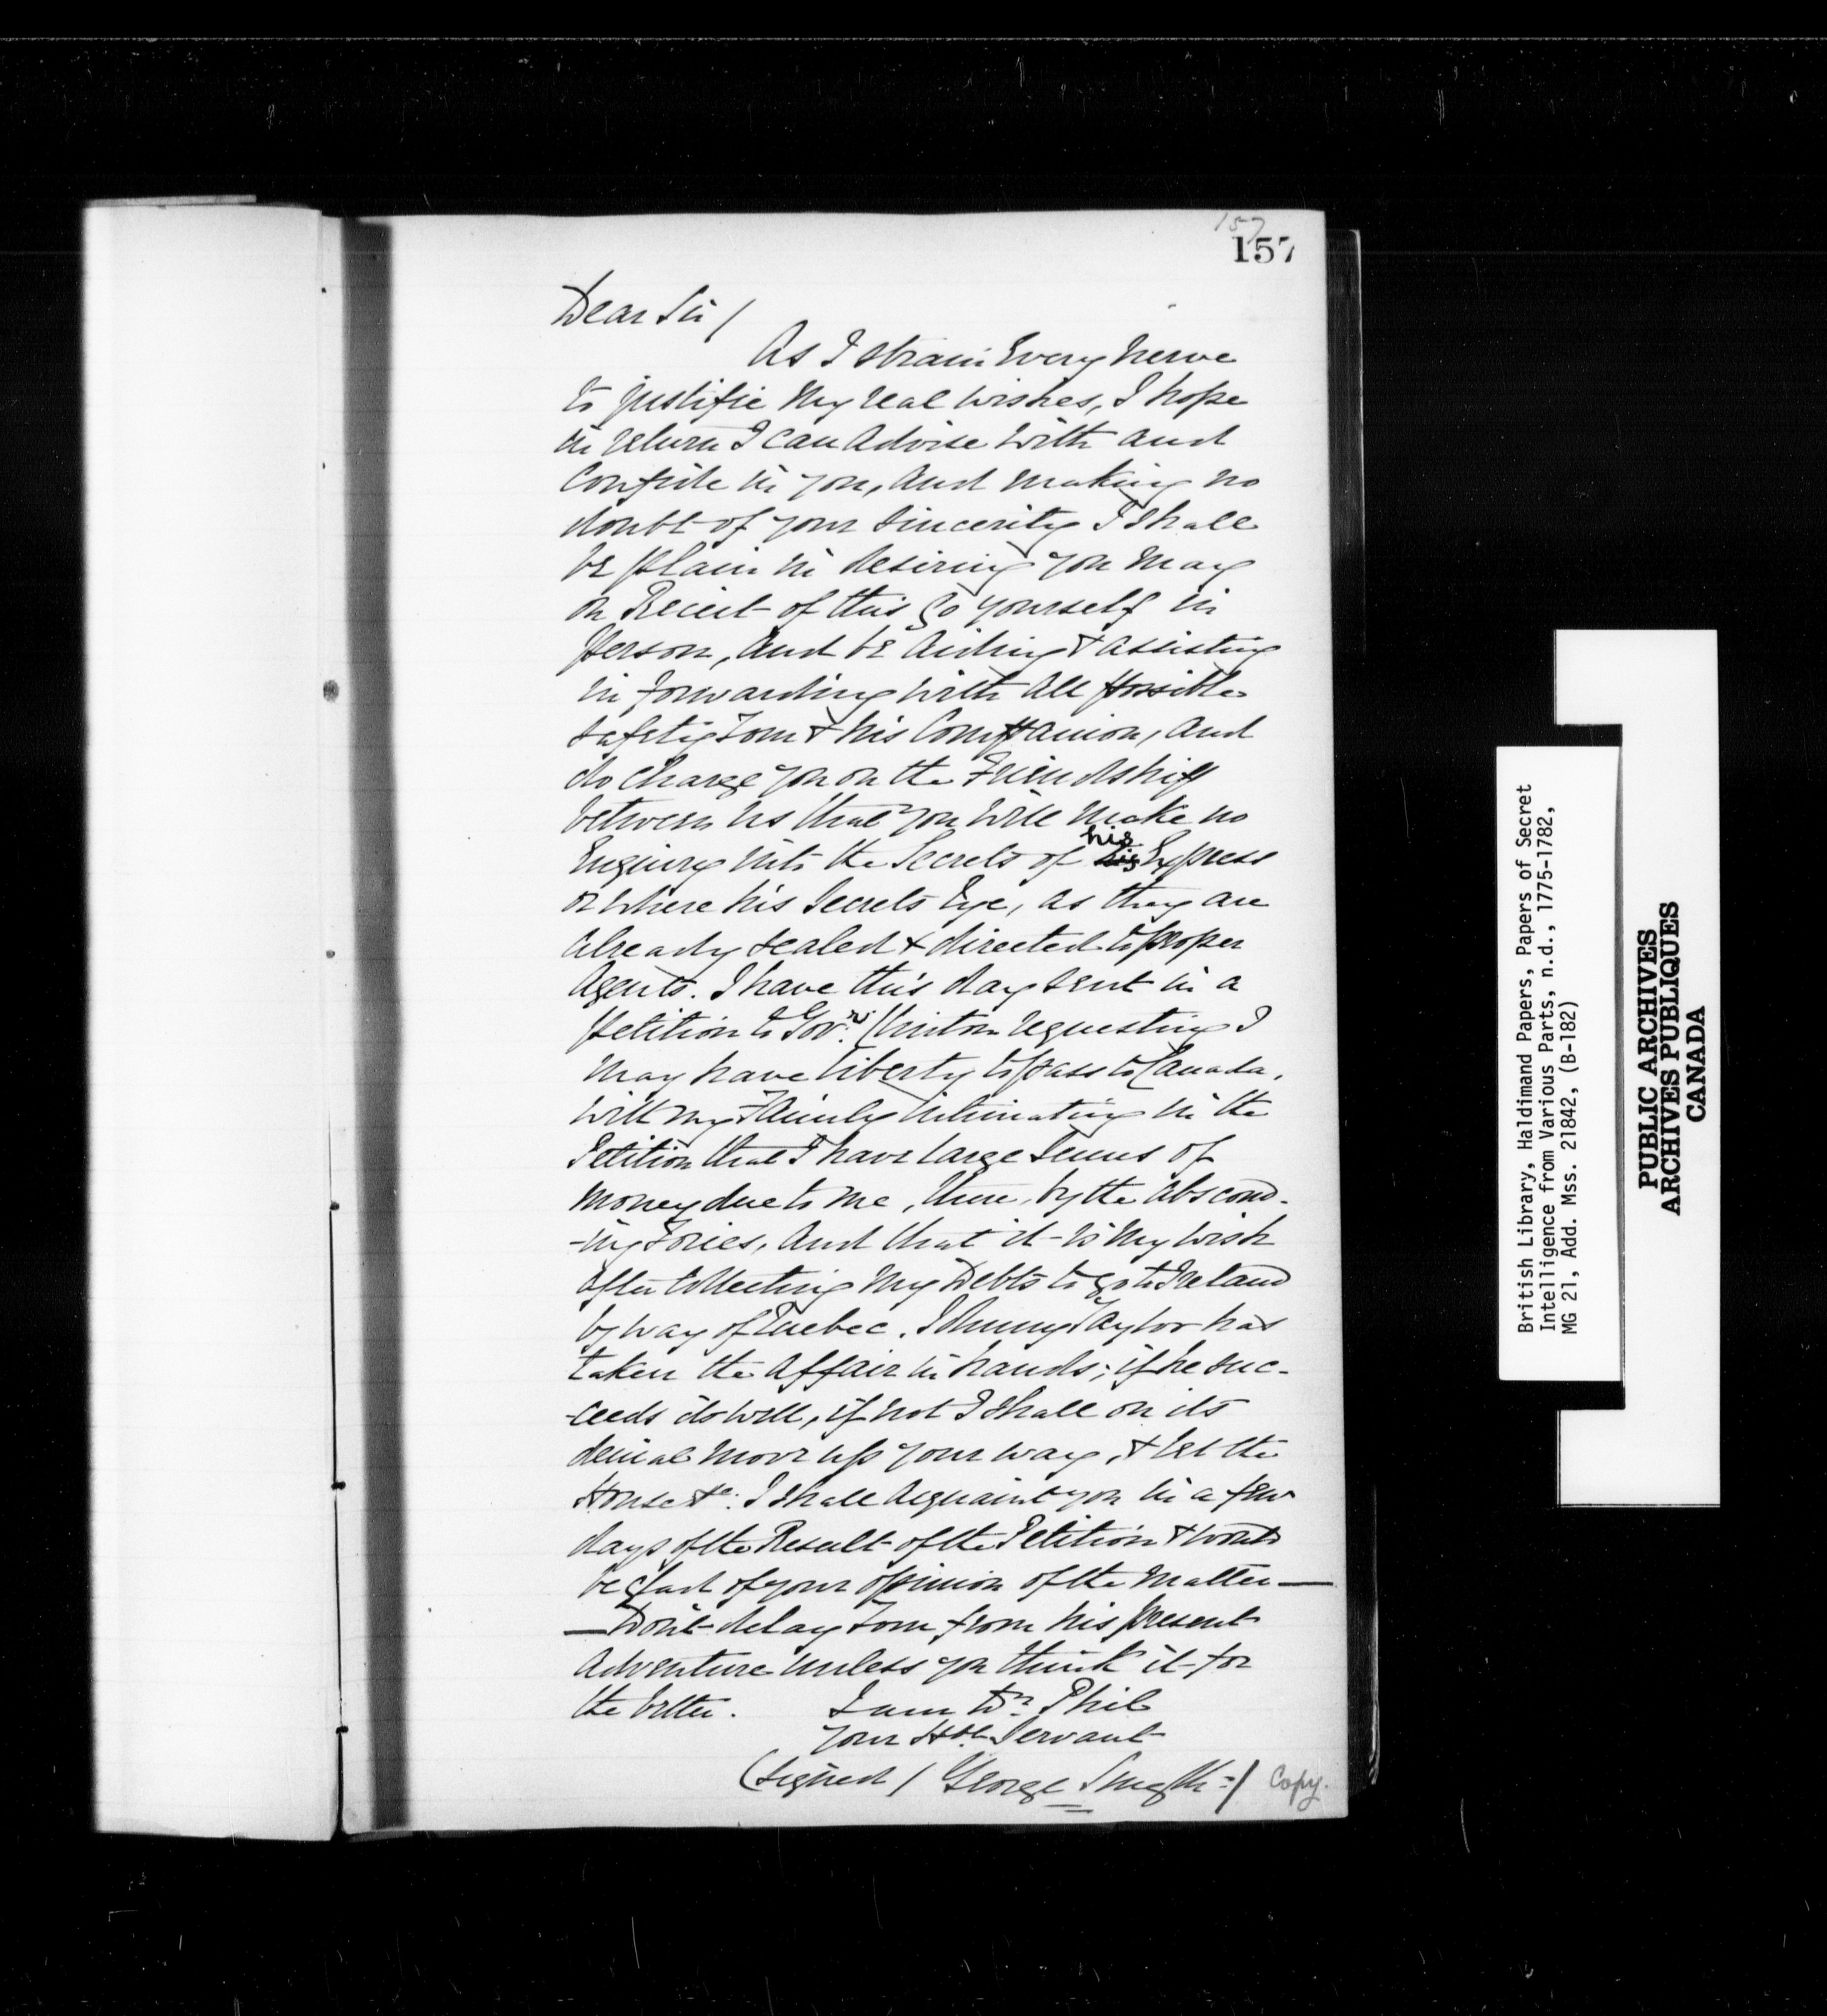 157
157
Dear Sir /
As I strain Every Nerve
to justifie My real wishes, I hope
in return I can Advise with and
Confide in you, And making no
doubt of your Sincerity I shall
be plain in desiring you May
on Receit of this go yourself in
Person, And be Aiding & assisting
in forwarding with All possible
safety Tom & his Companion, And
do Charge you on the Friendship
between us that you will make no
his
Enquiry into the Secrets of his Express
or where his Secrets Lye, as they are
already sealed & directed to proper
Agents. I have this day sent in a
Petition to Gov.r Clinton requesting I
May have liberty to pass to Canada,
with my Family intimating in the
Petition that I have large Sums of
Money due to me, there, by the Abscond-
-ing Tories, And that it is My wish
After Collecting My Debts to go to Ireland
by way of Quebec. Johnny Taylor has
taken the Affair in hands; if he suc-
-ceeds its well, if not I shall on its
denial move up your way, & let the
House &c. I shall Acquaint you in a few
days of the Result of the Petition & would
be glad of your opinion of the Matter —
— Don't delay Tom from his present
Adventure unless you think it for
the better. I am Dr. Phil
your Hble Servant
(signed / George Smyth =/ Copy.
British Library, Haldimand Papers, Papers of Secret
Intelligence from Various Parts, n.d., 1775-1782,
MG 21, Add. Mss. 21842, (B-182)
PUBLIC ARCHIVES
ARCHIVES PUBLIQUES
CANADA